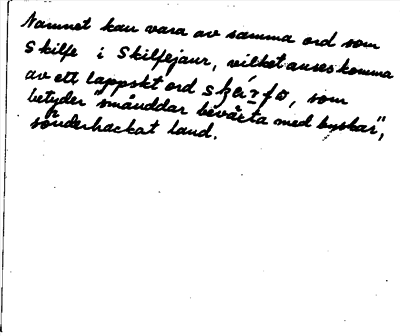 Namnet kan vara av samma ord som
Skilfe i Skilfejaur, vilket anses komma
av ett lappskt ord som
betyder "småuddar bevärta med buskar",
sönderhackat land.